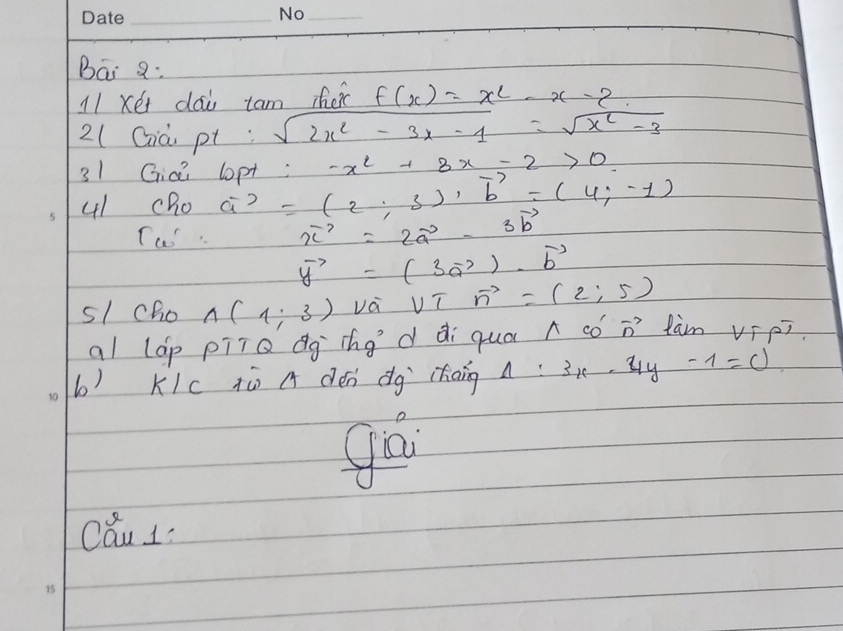 Date No
Bài 2:
1/ Xét dấu tam thức f(x) = x² - x - 2.
2/ Giải pt : √(2x² - 3x - 1) = √(x² - 3)
3/ Giải bpt : -x² + 3x - 2 > 0
5
4/ Cho a⃗ = (2 ; 3), b⃗ = (4; -1)
x⃗ = 2a⃗ - 3b⃗
y⃗ = (3a⃗) . b⃗
5/ Cho A(1; 3) và VT n⃗ = (2; 5)
a/ Lập PTTQ đg thg d đi qua A có n⃗ làm VTPT.
10
b) K/C từ A đến đg thẳng Δ : 3x - 4y - 1 = 0
Giải
Câu 1:
15